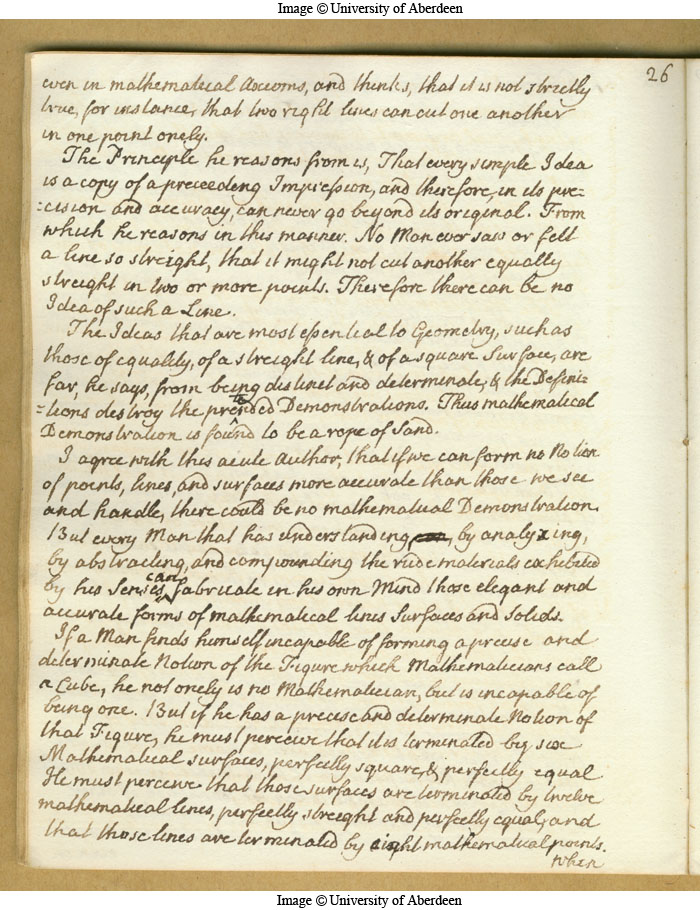 Image © University of Aberdeen
26
even in mathematical Axioms, and thinks, that it is not strictly
true, for instance, that two right lines can cut one another
in one point onely.
The Principle he reasons from is, That every simple Idea
is a copy of a preceeding Impression, and therefore, in its pre=
=cision and accuracy, can never go beyond its original. From
which he reasons in this manner. No Man ever saw or felt
a line so streight, that it might not cut another equally
streight in two or more points. Therefore there can be no
Idea of such a Line.
The Ideas that are most essential to Geometry, such as
those of equality, of a streight line, & of a square Surface, are
far, he says, from being distinct and determinate, & the Defini=
=tions destroy the pretended Demonstrations. Thus mathematical
Demonstration is found to be a rope of Sand.
I agree with this acute Author, that if we can form no Notion
of points, lines, and surfaces more accurate than those we see
and handle, there could be no mathematical Demonstration.
But every Man that has understanding, by analyzing,
by abstracting, and compounding the rude materials exhibited
by his Senses, can fabricate in his own Mind those elegant and
accurate forms of mathematical lines Surfaces and Solids.
If a Man finds himself incapable of forming a precise and
determinate Notion of the Figure which Mathematicians call
a Cube, he not onely is no Mathematician, but is incapable of
being one. But if he has a precise and determinate Notion of
that Figure, he must perceive that it is terminated by six
Mathematical surfaces, perfectly square, & perfectly equal
He must perceive that those surfaces are terminated by twelve
mathematical lines, perfectly streight and perfectly equal, and
that those lines are terminated by eight mathematical points.
when
Image © University of Aberdeen